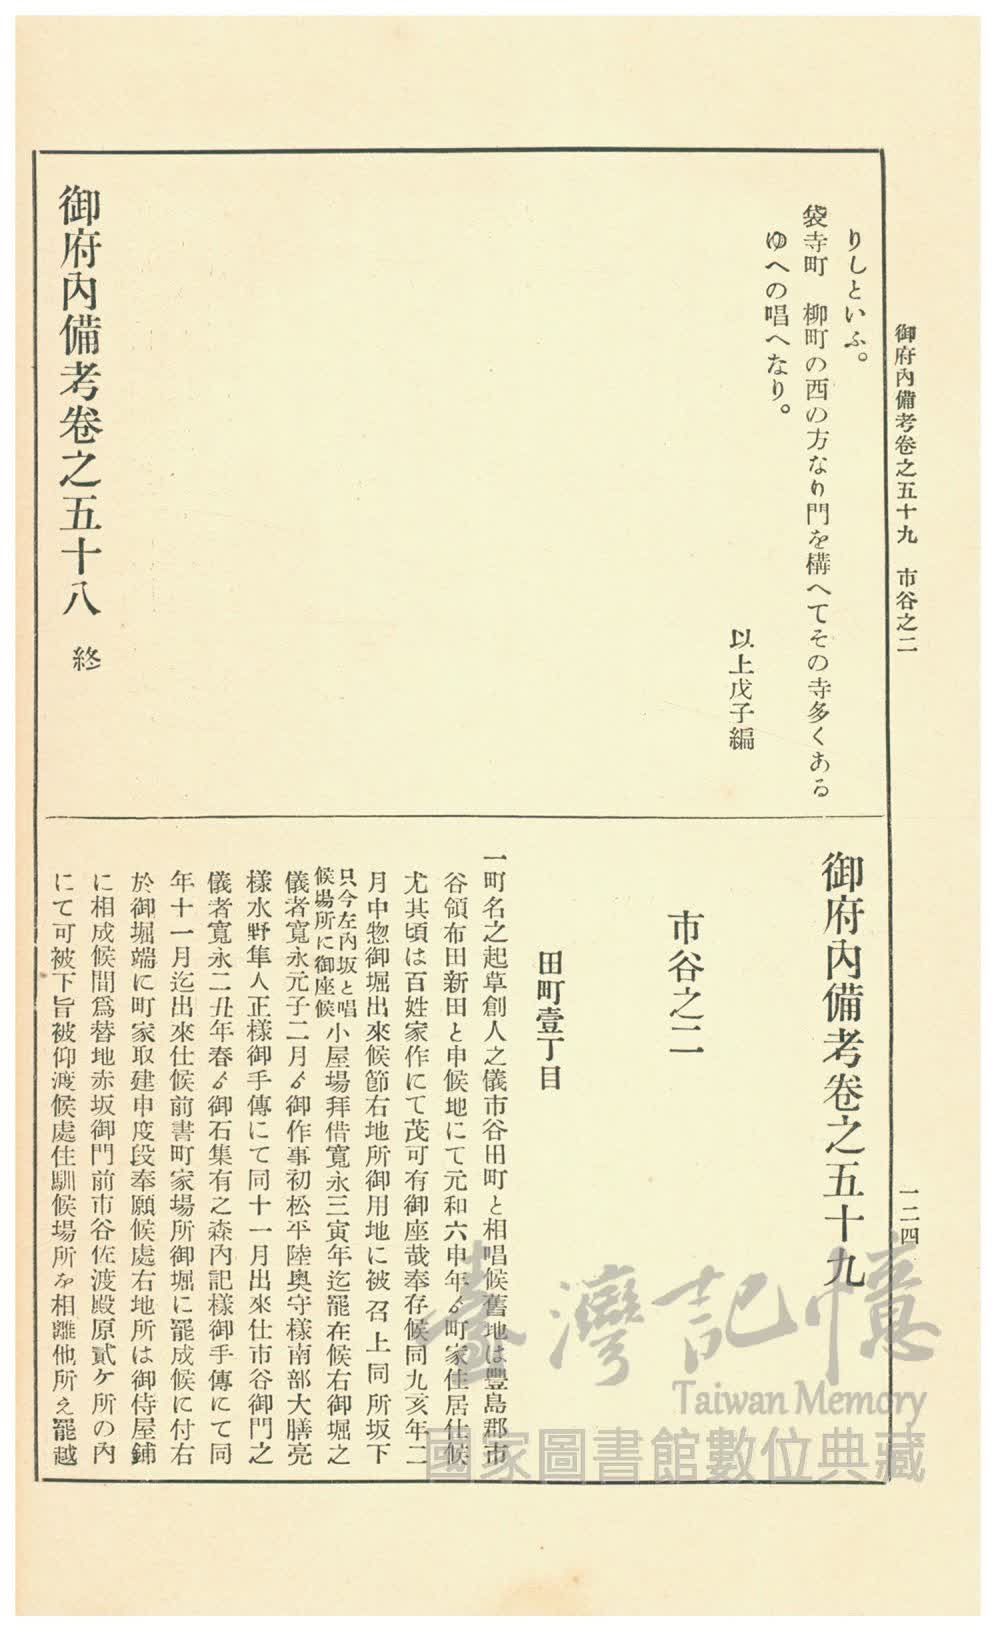 御府內備考卷之五十九　市谷之二
一二四
りしといふ。
袋寺町　柳町の西の方なり門を構へてその寺多くある
ゆへの唱へなり。
以上戊子編
御府內備考卷之五十八　終
御府內備考卷之五十九
市谷之二
田町壹丁目
一町名之起草創人之儀市谷田町と相唱候舊地は豐島郡市
谷領布田新田と申候地にて元和六申年ゟ町家住居仕候
尤其頃は百姓家作にて茂可有御座哉奉存候同九亥年二
月中惣御堀出來候節右地所御用地に被召上同所坂下
只今左內坂と唱
候場所に御座候
小屋場拜借寬永三寅年迄罷在候右御堀之
儀者寬永元子二月ゟ御作事初松平陸奧守樣南部大膳亮
樣水野隼人正樣御手傳にて同十一月出來仕市谷御門之
儀者寬永二丑年春ゟ御石集有之森內記樣御手傳にて同
年十一月迄出來仕候前書町家場所御堀に罷成候に付右
於御堀端に町家取建申度段奉願候處右地所は御侍屋鋪
に相成候間爲替地赤坂御門前市谷佐渡殿原貳ケ所の內
にて可被下旨被仰渡候處住馴候場所を相離他所え罷越
臺灣記憶
Taiwan Memory
國家圖書館數位典藏